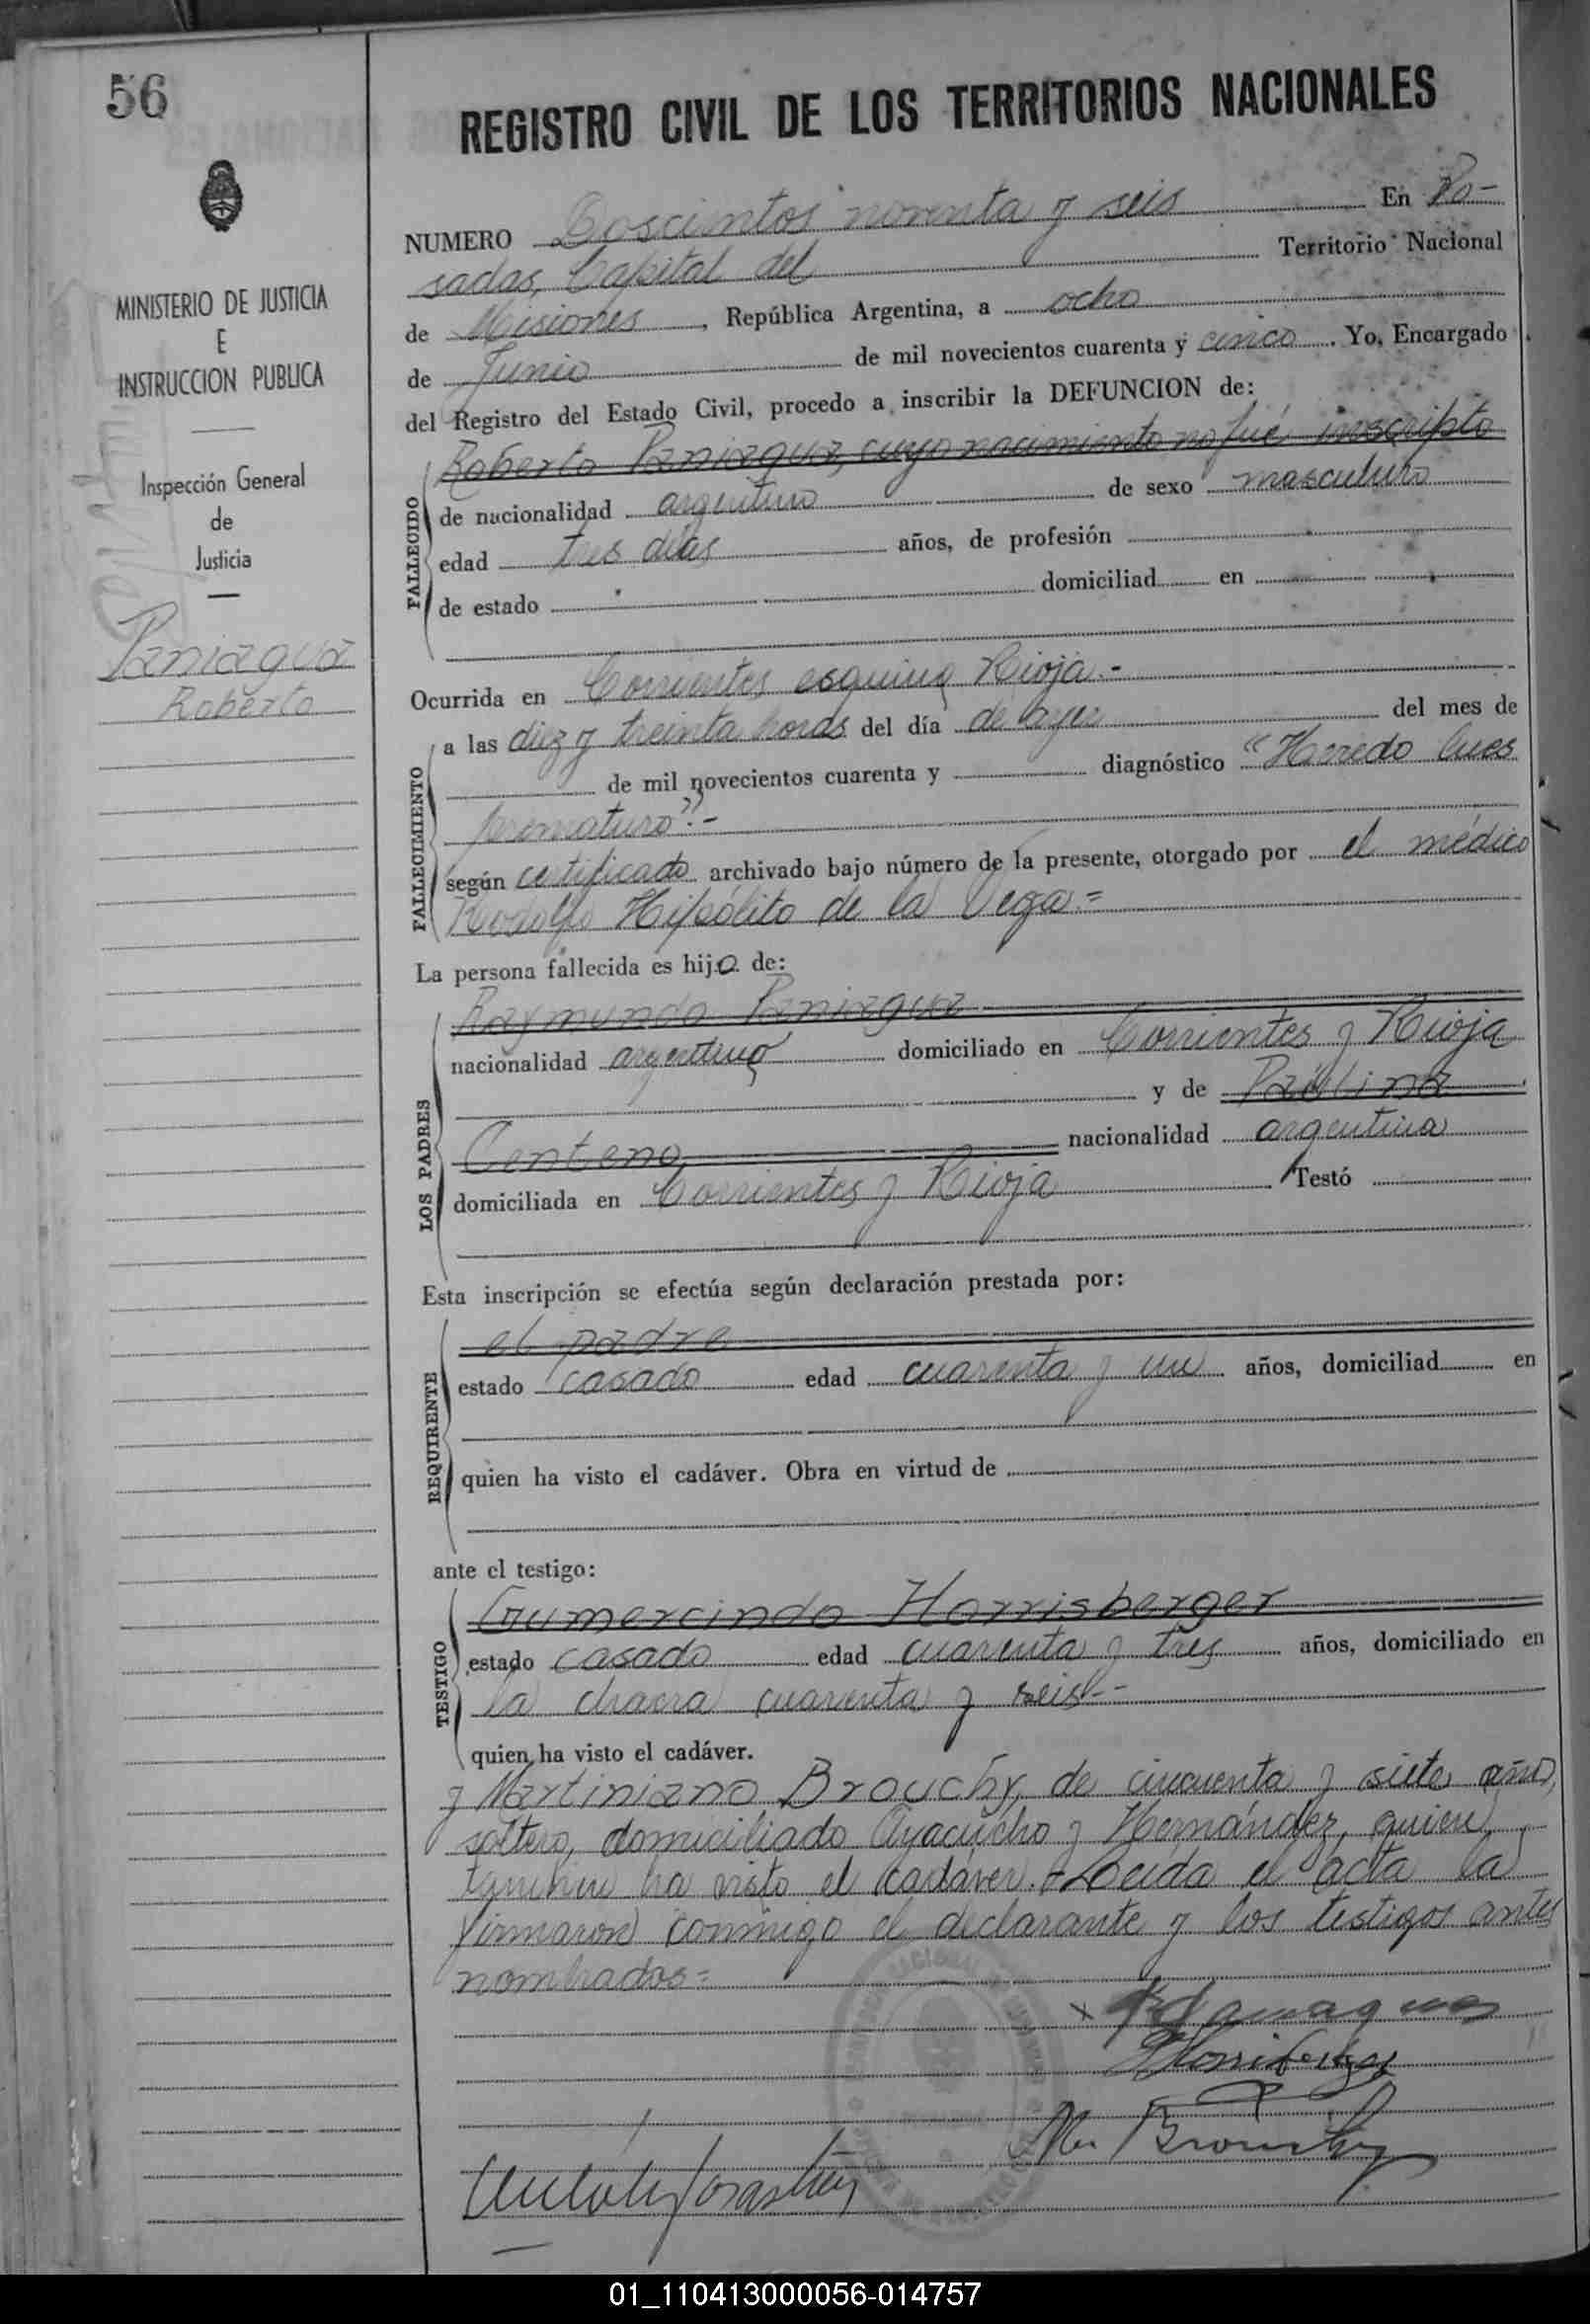 56
MINISTERIO DE JUSTICIA
E
INSTRUCCION PUBLICA
Inspección General
de
Justicia
Paniagua
Roberto
REGISTRO CIVIL DE LOS TERRITORIOS NACIONALES
NUMERO Doscientos noventa y seis En Po-
sadas, Capital del Territorio Nacional
de Misiones, República Argentina, a ocho
de Junio de mil novecientos cuarenta y cinco. Yo, Encargado
del Registro del Estado Civil, procedo a inscribir la DEFUNCION de:
FALLECIDO
Roberto Paniagua, cuyo nacimiento no fué inscripto
de nacionalidad argentino de sexo masculino
edad tres días años, de profesión
de estado domiciliad en
Ocurrida en Corrientes esquina Rioja.-
FALLECIMIENTO
a las diez y treinta horas del día de ayer del mes de
de mil novecientos cuarenta y diagnóstico "Heredo lues
prematuro".-
según certificado archivado bajo número de la presente, otorgado por el médico
Rodolfo Hipólito de la Vega.=
La persona fallecida es hijo de:
LOS PADRES
Raymundo Paniagua
nacionalidad argentino domiciliado en Corrientes y Rioja
y de Paulina
Centeno nacionalidad argentina
domiciliada en Corrientes y Rioja Testó
Esta inscripción se efectúa según declaración prestada por:
REQUIRENTE
el padre
estado casado edad cuarenta y un años, domiciliad en
quien ha visto el cadáver. Obra en virtud de
ante el testigo:
TESTIGO
Gumercindo Horrisberger
estado casado edad cuarenta y tres años, domiciliado en
la chacra cuarenta y seis.-
quien ha visto el cadáver.
y Martiniano Brouchy, de cincuenta y siete años,
soltero, domiciliado Ayacucho y Hernández, quien
también ha visto el cadáver.- Leída el acta la
firmaron conmigo el declarante y los testigos antes
nombrados=
M. Brouchy
01_110413000056-014757